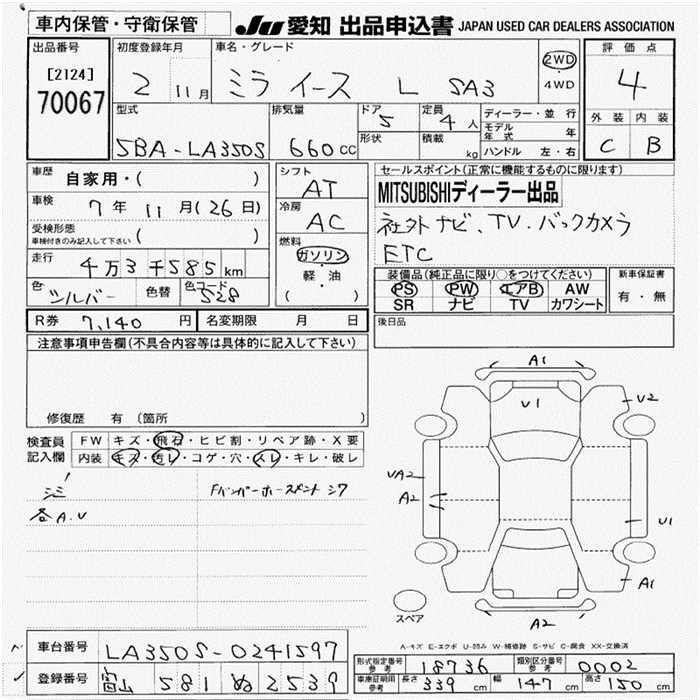 車内保管・守衛保管
JU 愛知 出品申込書 JAPAN USED CAR DEALERS ASSOCIATION
出品番号
[2124]
70067
初度登録年月
2 11月
車名・グレード
ミラ イース L SA3
2WD
・
4WD
評価点
4
外装 内装
C B
型式
5BA-LA350S
排気量
660cc
ドア
5
形状
定員
4人
積載
kg
ディーラー・並行
モデル年式 年
ハンドル 左・右
車歴 自家用・( )
車検 7年 11月(26日)
受検形態
車検付きのみ記入して下さい ( )
走行 4万3千585km
色 シルバー 色替 色コード S28
シフト
AT
冷房
AC
燃料
ガソリン
・
軽・油
( )
セールスポイント(正常に機能するものに限ります)
MITSUBISHIディーラー出品
社外ナビ、TV・バックカメラ
ETC
装備品(純正品に限り○をつけてください)
PS PW エアB AW
SR ナビ TV カワシート
新車保証書
有・無
R券 7,140円 名変期限 月 日
後日品
注意事項申告欄(不具合内容等は具体的に記入して下さい)
修復歴 有 (箇所 )
検査員記入欄
FW キズ・飛石・ヒビ割・リペア跡・X要
内装 キズ・汚レ・コゲ・穴・スレ・キレ・破レ
各A.U
A1
U1
U2
UA2
A2
U1
A1
A2
スペア
A-キズ E-エクボ U-凹み W-補修跡 S-サビ C-腐食 XX-交換済
車台番号 LA350S-0241597
登録番号 富山 581 ぬ2539
形式指定番号 参考 18736 類別区分番号 参考 0002
車庫証明用 参考 長さ 339cm 幅 147cm 高さ 150cm